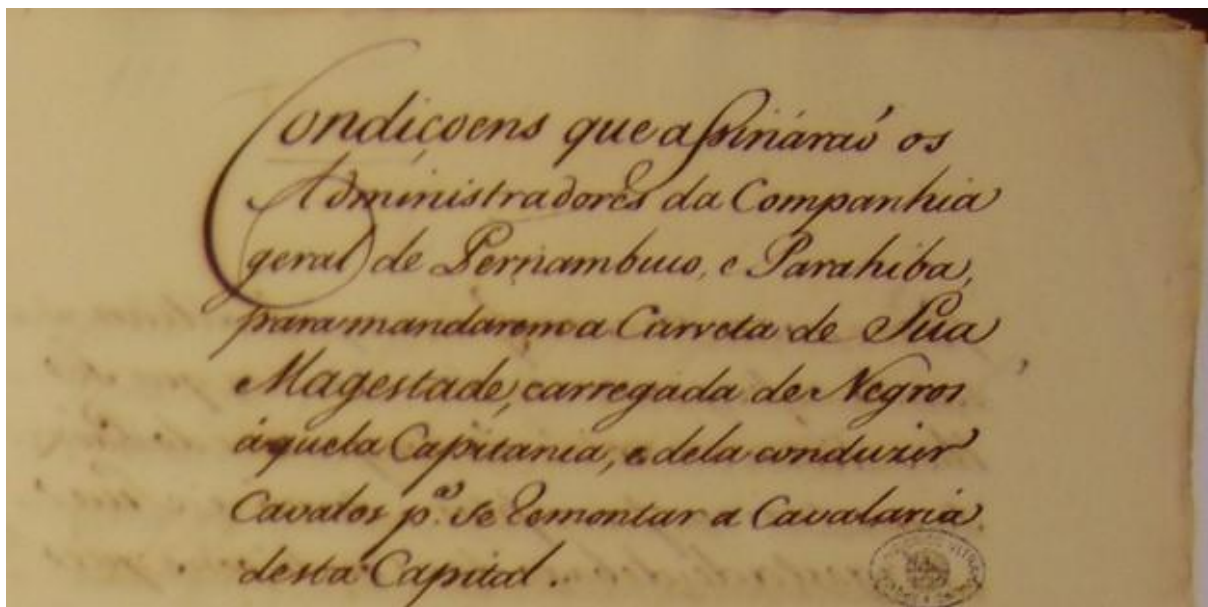 Condiçoens que assináraõ os
Administradores da Companhia
geral de Pernambuco, e Parahiba,
para mandarem a Curveta de Sua
Magestade, carregada de Negros
áquela Capitania, e dela conduzir
Cavalos p.ª se remontar a Cavalaria
desta Capital.